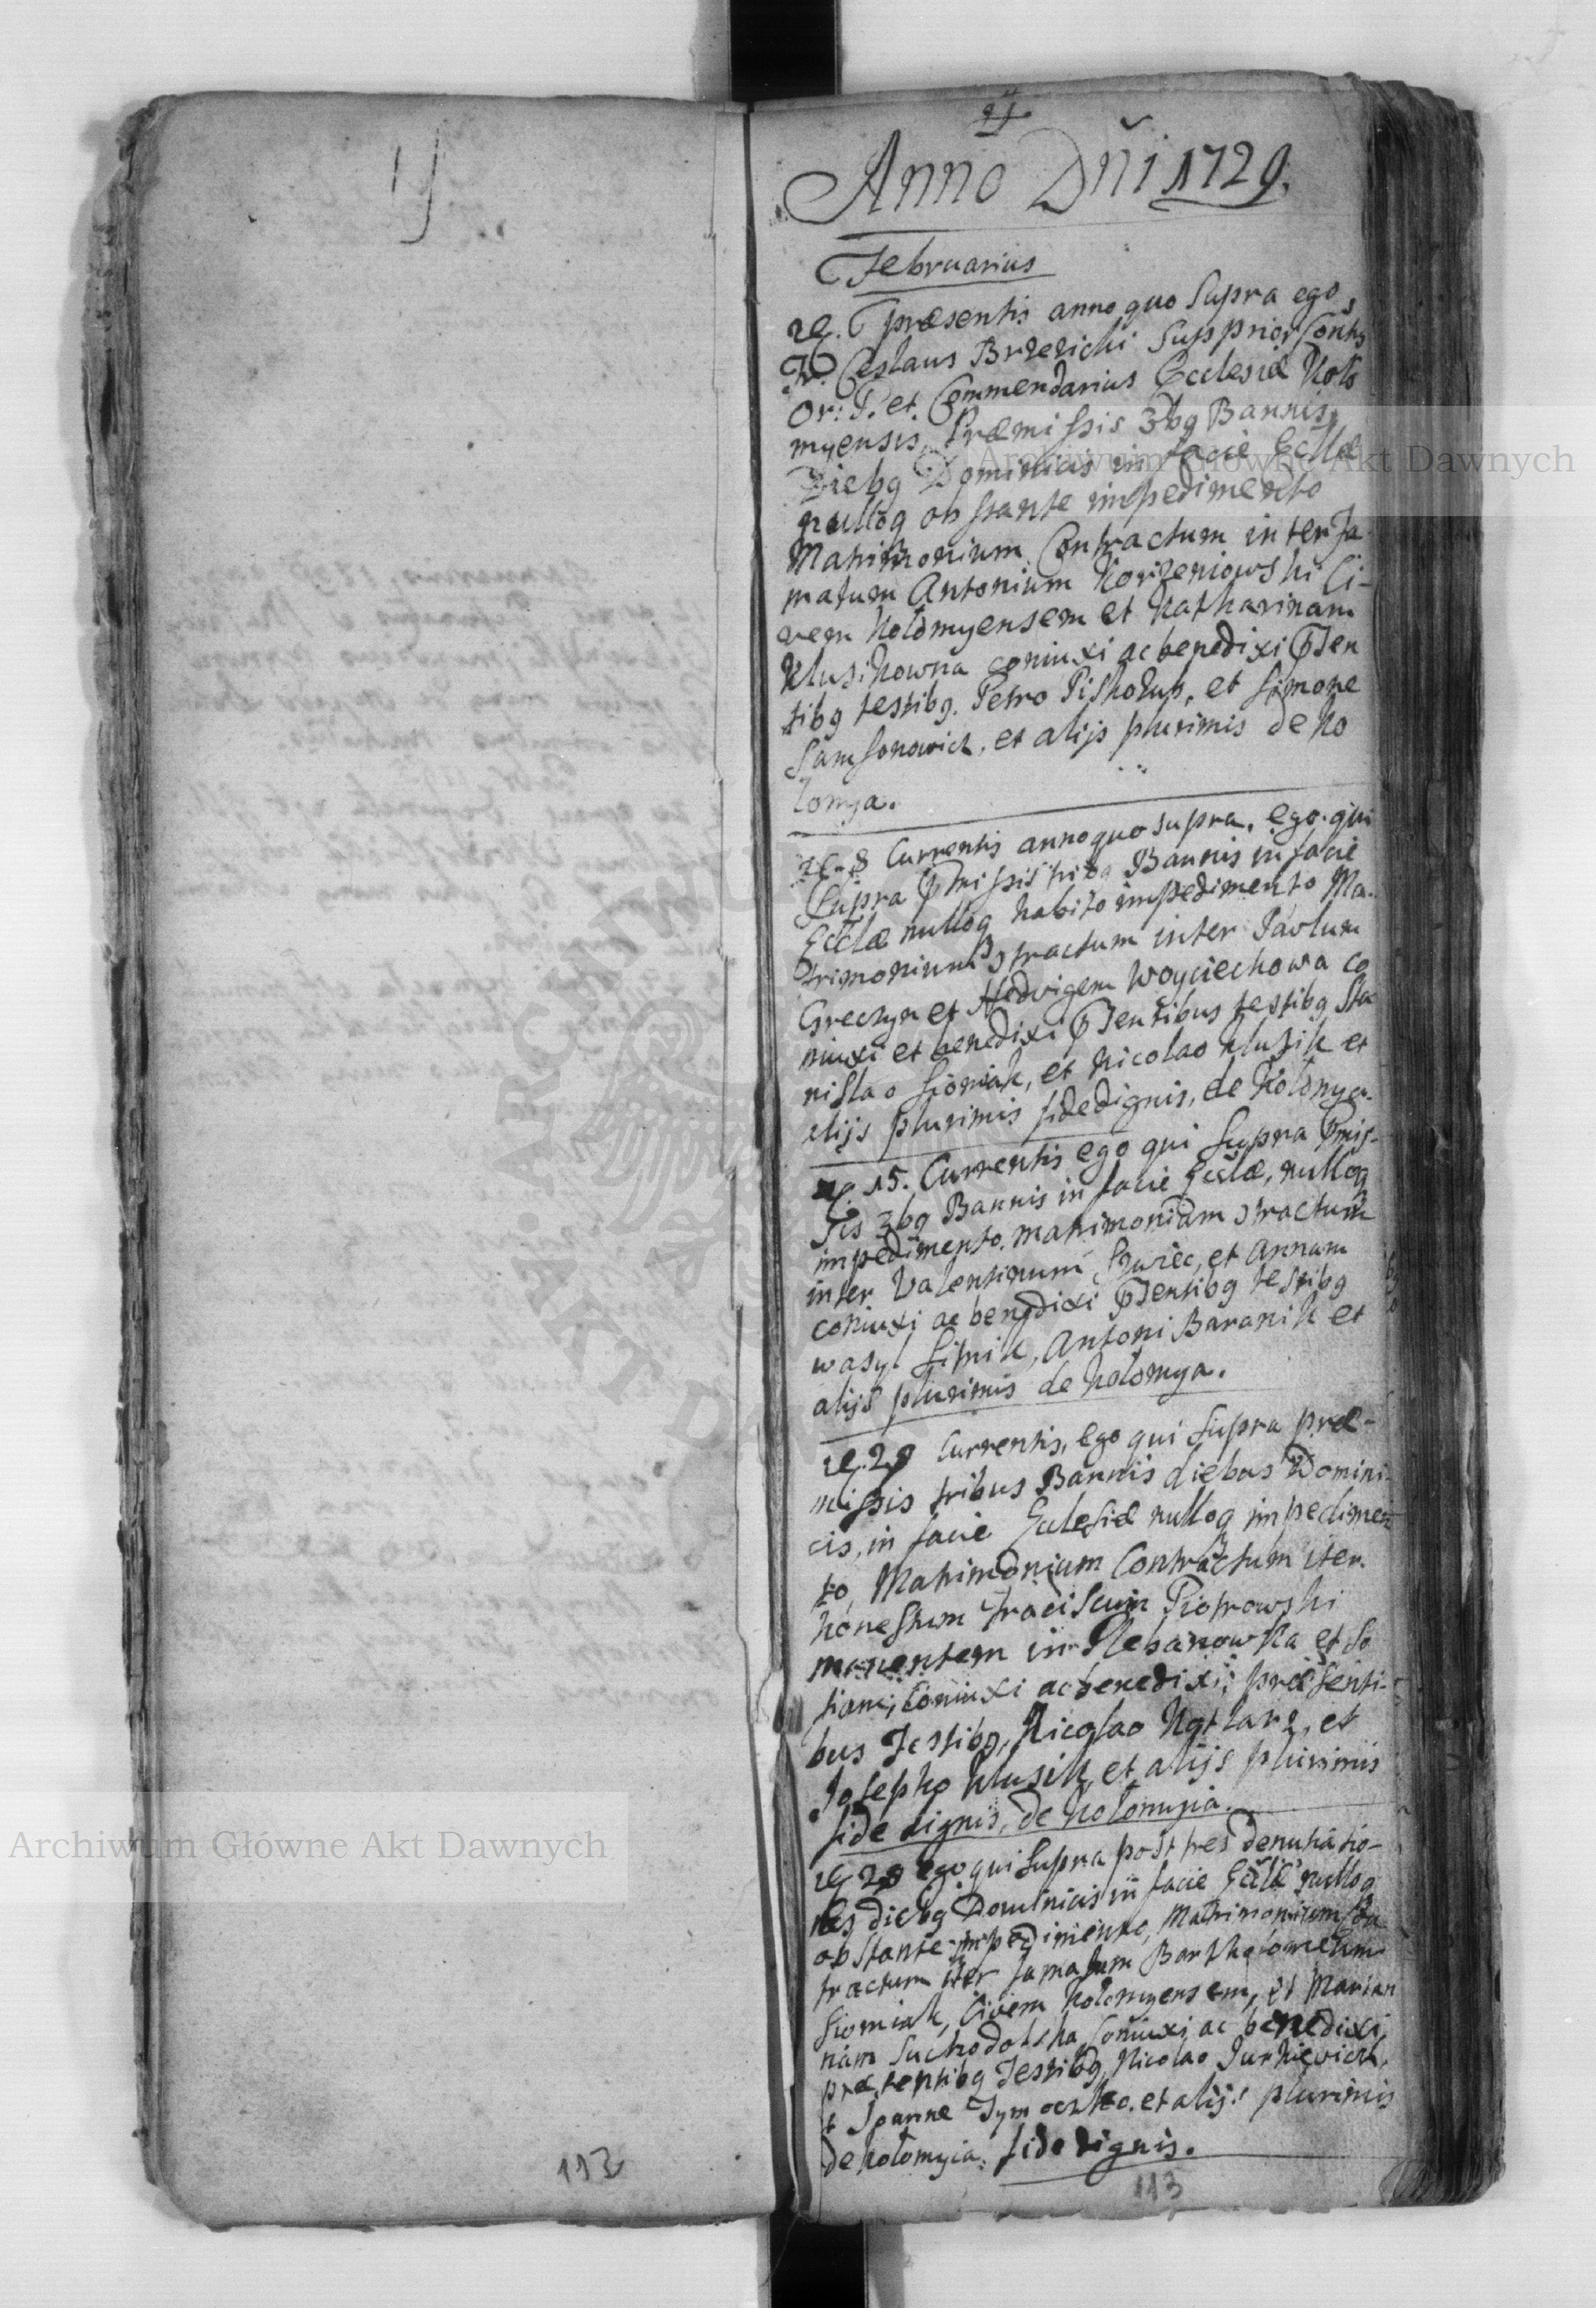 Anno Dñi 1729.
Februarius
præsentis anno quo Supra ego
Fr. Ceslaus Brzezicki Supprior Conts
Or: P. et Commendarius Ecclesiæ Koło
myensis, Præmissis 3bg Bannis,
Diebg Dominicis in facie Ecllæ
nullog obstante impedimento
Matrimonium Contractum inter Fa
matum Antonium Korzeniowski Ci-
vem Kołomyensem et Katharinam
Kluzikowna coniuxi ac benedixi
tibg testibg. Petro Piskozub, et Simone
Samsonowicz, et alijs plurimis de Ko
łomya.
8 Currentis anno quo supra, ego qui
Supra Bannis in facie
Ecclæ nullog habito impedimento Ma-
trimonium inter Pavlum
Greczyn et Hedvigem Woyciechowa co
niuxi et benedixi testibg Sta
nislao Siomak, et Nicolao Kluzik et
alijs plurimis fidedignis, de Kołomya.
15. Currentis ego qui Supra
sis 3bg Bannis in facie Ecclæ, nullog
impedimento matrimonium
inter Valentinum Szwiec, et Annam
coniuxi ac benedixi testibg
wasyl Sitnik, Antoni Baranik et
alijs plurimis de Kołomya.
Currentis, ego qui Supra præ-
missis tribus Bannis diebus Domini-
cis, in facie Eclesiæ nullog impedimen
to, Matrimonium Contractum iter
honestum Fraciscum Piotrowski
manentem in Plebanowka et So
fiam, coniuxi ac benedixi; præsenti-
bus Testibg, Nicolao Kotlarz, et
Josepho Kluzik, et alijs plurimis
fide dignis, de Kołomyia.
ego qui Supra post tres denutiatio-
nes diebg Dominicis in facie nullog
obstante impedimento, Matrimonium
tractum iter famatum Bartholomeum
Siomiak, Civem Kolomyensem, et Marian
nam Suchodolska Coniuxi ac benedixi,
præsentibg Testibg, Nicolao Jurkiewicz,
et Joanne Tymoczko. et alijs plurimis
de Kołomyia. fide dignis.
112
113
Archiwum Główne Akt Dawnych
Archiwum Główne Akt Dawnych